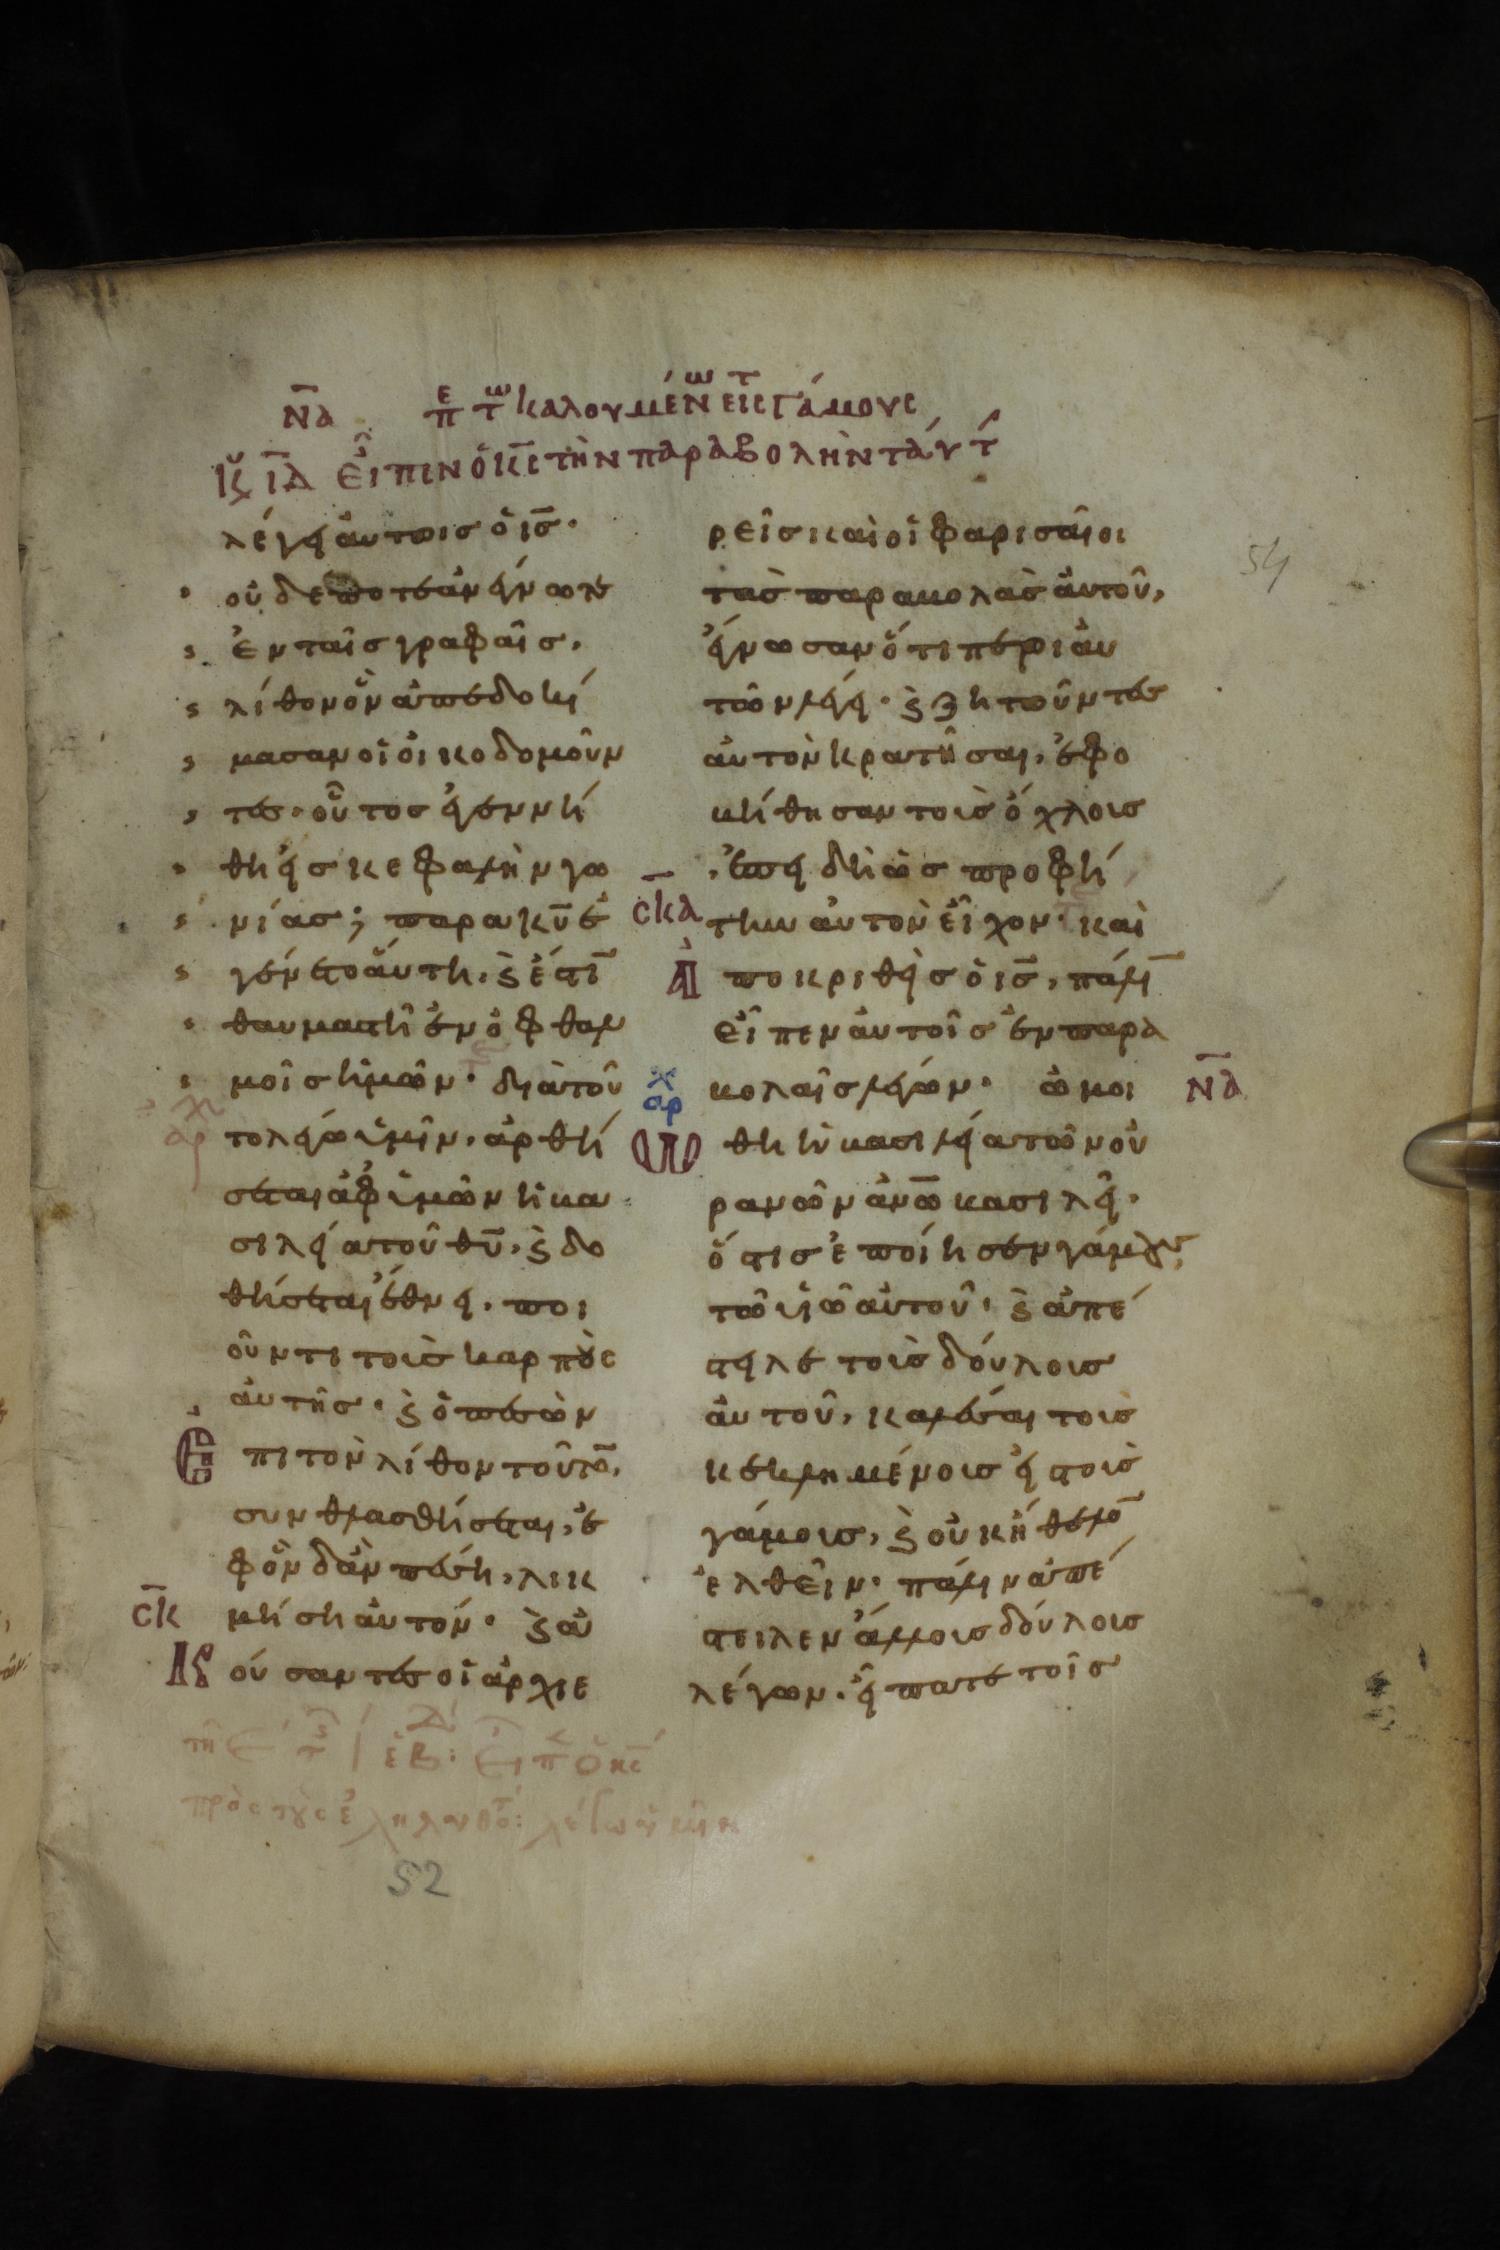 ΝΑ περὶ τῶν καλουμένων εἰς τ Γάμους
Κυ ΙΔ Εἶπεν ὁ κς τὴν παραβολὴν ταύτ
λέγει αὐτοις ὁ ις·
οὐδεποτε ἀνέγνωτε
ἐν ταῖς γραφαῖς,
λίθον ὃν ἀπεδοκί
μασαν οἱ οἰκοδομοῦν
τες· οὗτος ἐγεννή
θη εἰς κεφαλὴν γω
νίας; παρα κυ ἐ
γένετο ἅυτη, ϗ ἔστι
θαυμαστὴ ἐν ὀφθαλ
μοῖς ἡμῶν· διὰ τοῦ
το λέγω ὑμῖν, ἀρθή
σεται ἀφ ὑμῶν ἡ βα
σιλεία τοῦ θυ, ϗ δο
θήσεται ἔθνει, ποι
οῦντι τοὺς καρποὺς
αὐτῆς· ϗ ὁ πεσὼν
Επι τὸν λίθον τοῦτο,
συνθλασθήσεται, ἐ
φ ὃν δ ἂν πέση, λικ
ΣΚ μήση αὐτόν· ϗ ἀ
Κούσαντες οἱ ἀρχιε
ρεῖς καὶ οἱ φαρισαῖοι
τὰς παραβολὰς αὐτοῦ,
ἔγνωσαν ὅτι περὶ αὐ
τῶν λέγει· ϗ ζητοῦντες
αὐτὸν κρατῆσαι, ἐφο
βήθησαν τοὺς ὄχλους
ἐπειδὴ ὡς προφή
ΣΚΑ την αὐτὸν εἶχον· καὶ
Ἀποκριθεὶς ὁ ις, πάλι
εἶπεν αὐτοῖς ἐν παρα
βολαῖς λέγων· ὡμοι ΝΑ
αρχ
Ωθη ἡ βασιλεία τῶν οὐ
ρανῶν ἀνω βασιλεῖ·
ὅστις ἐποίησεν γάμους,
τῶ υἱῶ αὐτοῦ· ϗ ἀπέ
στειλε τοὺς δούλους
αὐτοῦ, καλέσαι τοὺς
κεκλημένους εἰς τοὺς
γάμους, ϗ οὐκ ἤθελο
ἐλθεῖν· πάλιν ἀπέ
στειλεν ἄλλους δούλους
λέγων· εἴπατε τοῖς
εἶπ ὁ κς
πρὸς τοὺς ἐληλυθο
52
54